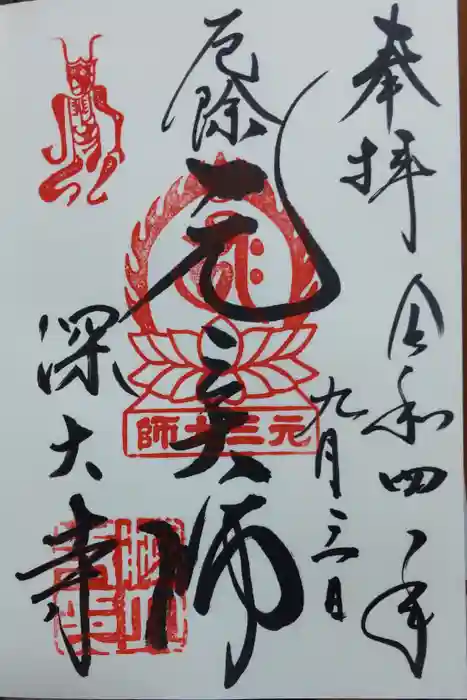 奉拝
令和四年
九月三日
厄除
元三大師
深大寺
元三大師